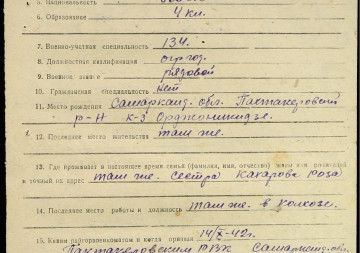 5. Национальность
6. Образование 4 кл.
7. Военно-учетная специальность 134.
8. Должностная квалификация
9. Военное звание рядовой
10. Гражданская специальность нет
11. Место рождения Самарканд. обл. Пахтакоровский
р-н к-з Орджоникидзе.
12. Прежнее место жительства там же.
13. Где проживает в настоящее время семья (фамилия, имя, отчество) жены или родителей
и точный их адрес там же. Сестра Кахарова Роза
14. Последнее место работы и должность там же. в колхозе.
15. Каким райгорвоенкоматом и когда призван 14/X-42г.
Пахтакоровским РВК Самарканд. обл.